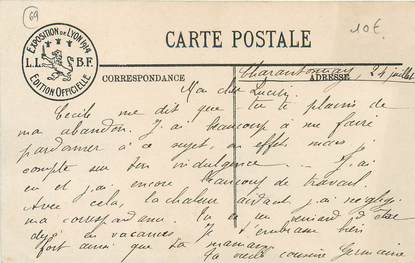 69
10€
EXPOSITION DE LYON 1914
L.L. B.F.
ÉDITION OFFICIELLE
CARTE POSTALE
CORRESPONDANCE
ADRESSE
Charantonnay, 24 juillet
Mon cher Lucily.
Cécile me dit que tu te plains de
ma abandon. J'ai beaucoup à me faire
pardonner à ce sujet, en effet mais je
compte sur ton indulgence. J'ai
eu et j'ai encore beaucoup de travail.
Avec cela, la chaleur aidant j'ai négligé
ma correspondance. Tu es un veinard d'être
déjà en vacances. Je t'embrasse bien
fort ainsi que ta maman
Ta vieille cousine Germaine